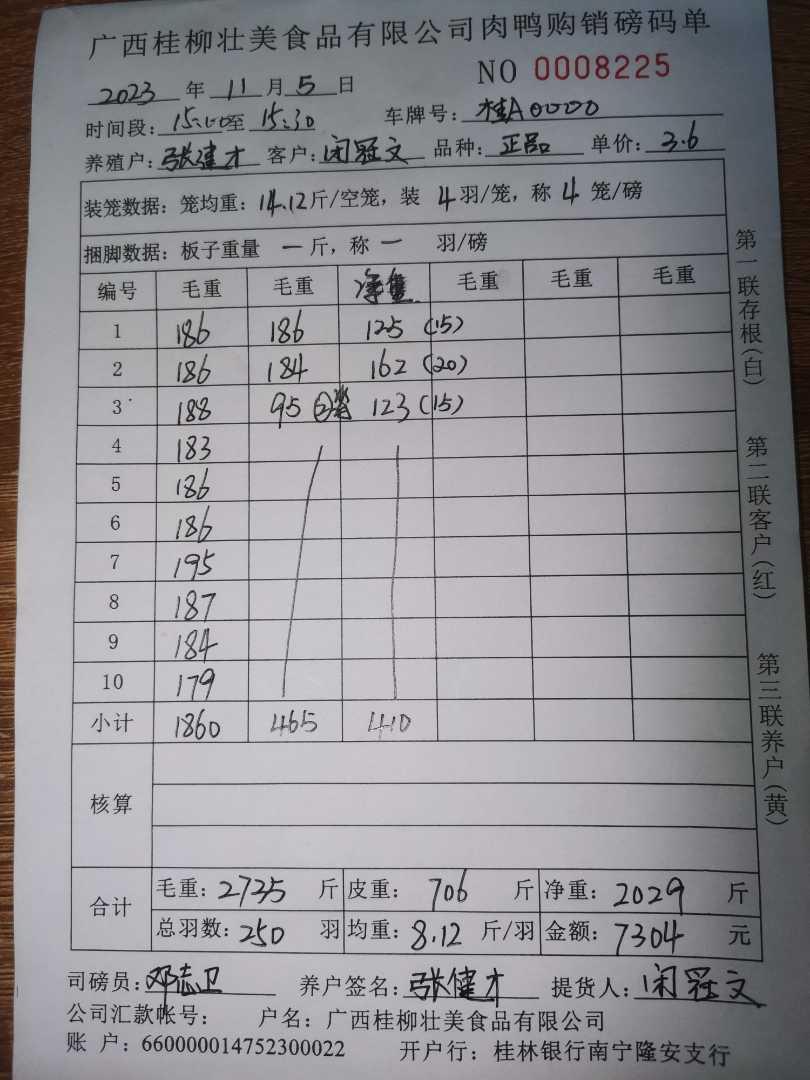 广西桂柳壮美食品有限公司肉鸭购销磅码单
2023 年 11 月 5 日 NO 0008225
时间段: 15:00 至 15:30 车牌号: 桂A0000
养殖户: 张健才 客户: 闭冠文 品种: 正品 单价: 3.6
装笼数据: 笼均重: 14.12 斤/空笼, 装 4 羽/笼, 称 4 笼/磅
捆脚数据: 板子重量 一 斤, 称 一 羽/磅
编号 毛重 毛重 净重 毛重 毛重 毛重
1 186 186 125 (15)
2 186 184 162 (20)
3 188 95 ② 123 (15)
4 183
5 186
6 186
7 195
8 187
9 184
10 179
小计 1860 465 410
核算
合计
毛重: 2735 斤 皮重: 706 斤 净重: 2029 斤
总羽数: 250 羽 均重: 8.12 斤/羽 金额: 7304 元
司磅员: 邓志卫 养户签名: 张健才 提货人: 闭冠文
公司汇款帐号: 户名: 广西桂柳壮美食品有限公司
账 户: 660000014752300022 开户行: 桂林银行南宁隆安支行
第一联存根(白)
第二联客户(红)
第三联养户(黄)